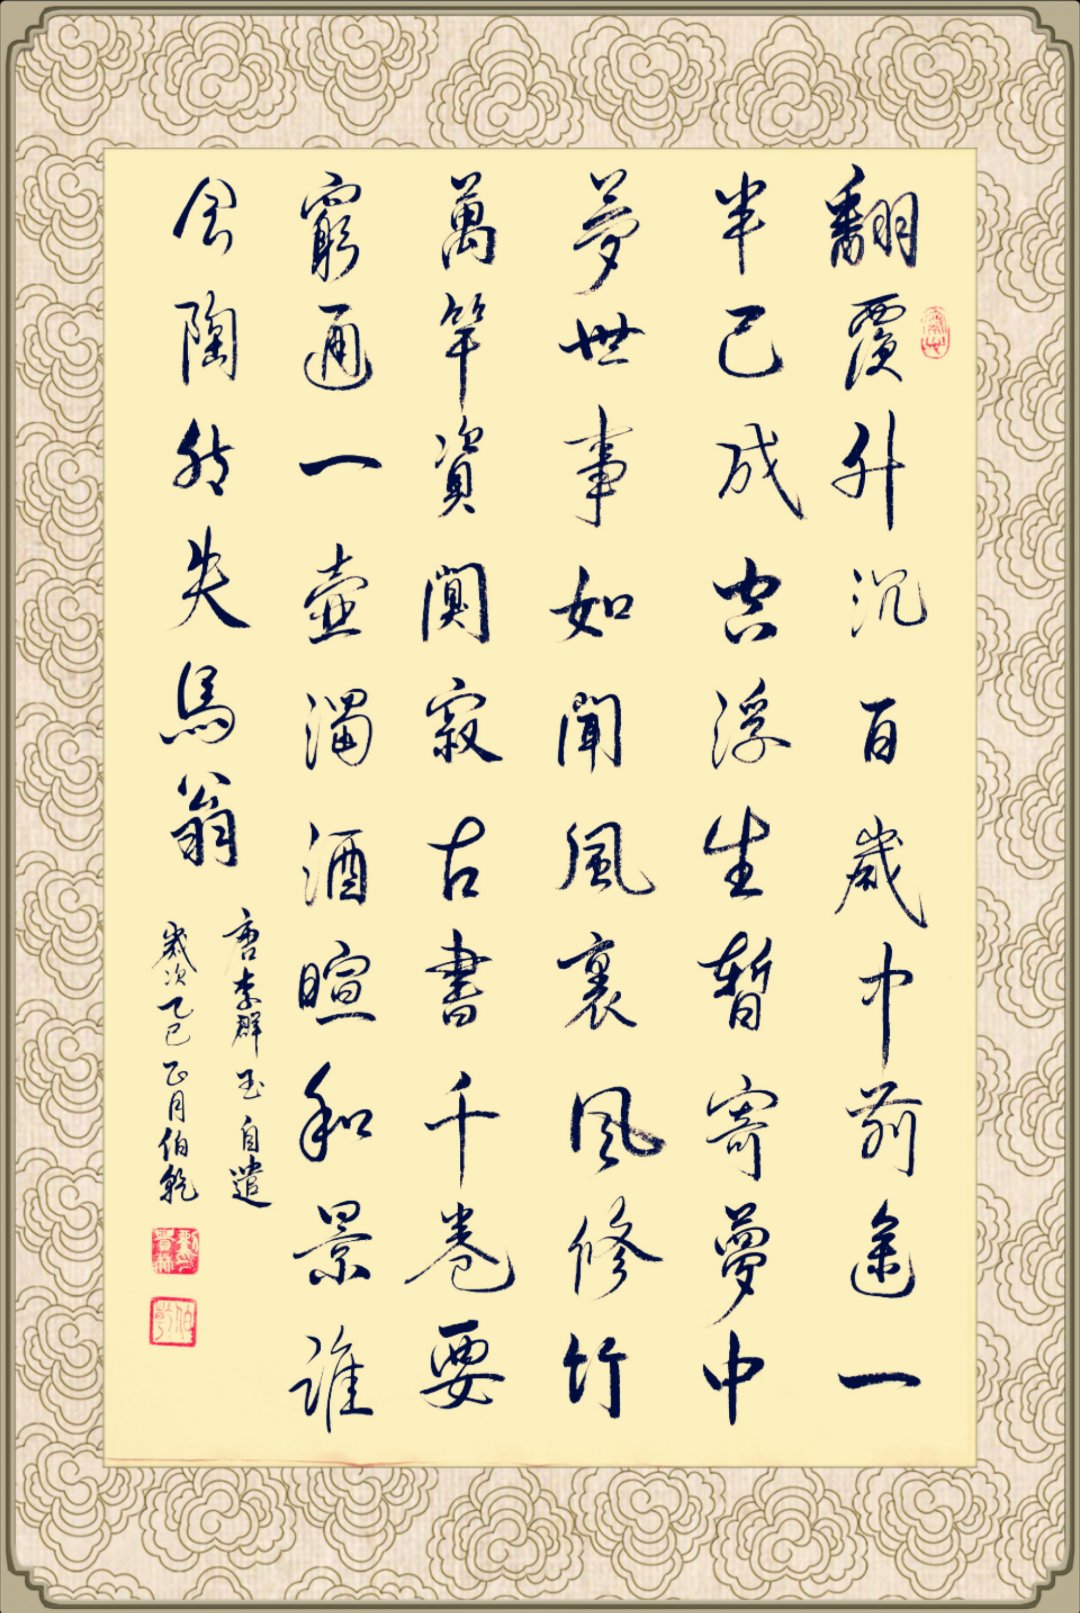 翻覆升沉百歲中前途一
半已成空浮生暫寄夢中
夢世事如聞風裏風修竹
萬竿資闃寂古書千卷要
窮通一壺濁酒暄和景誰
會陶然失馬翁
唐李群玉自遣
歲次乙巳正月伯乾
伯乾